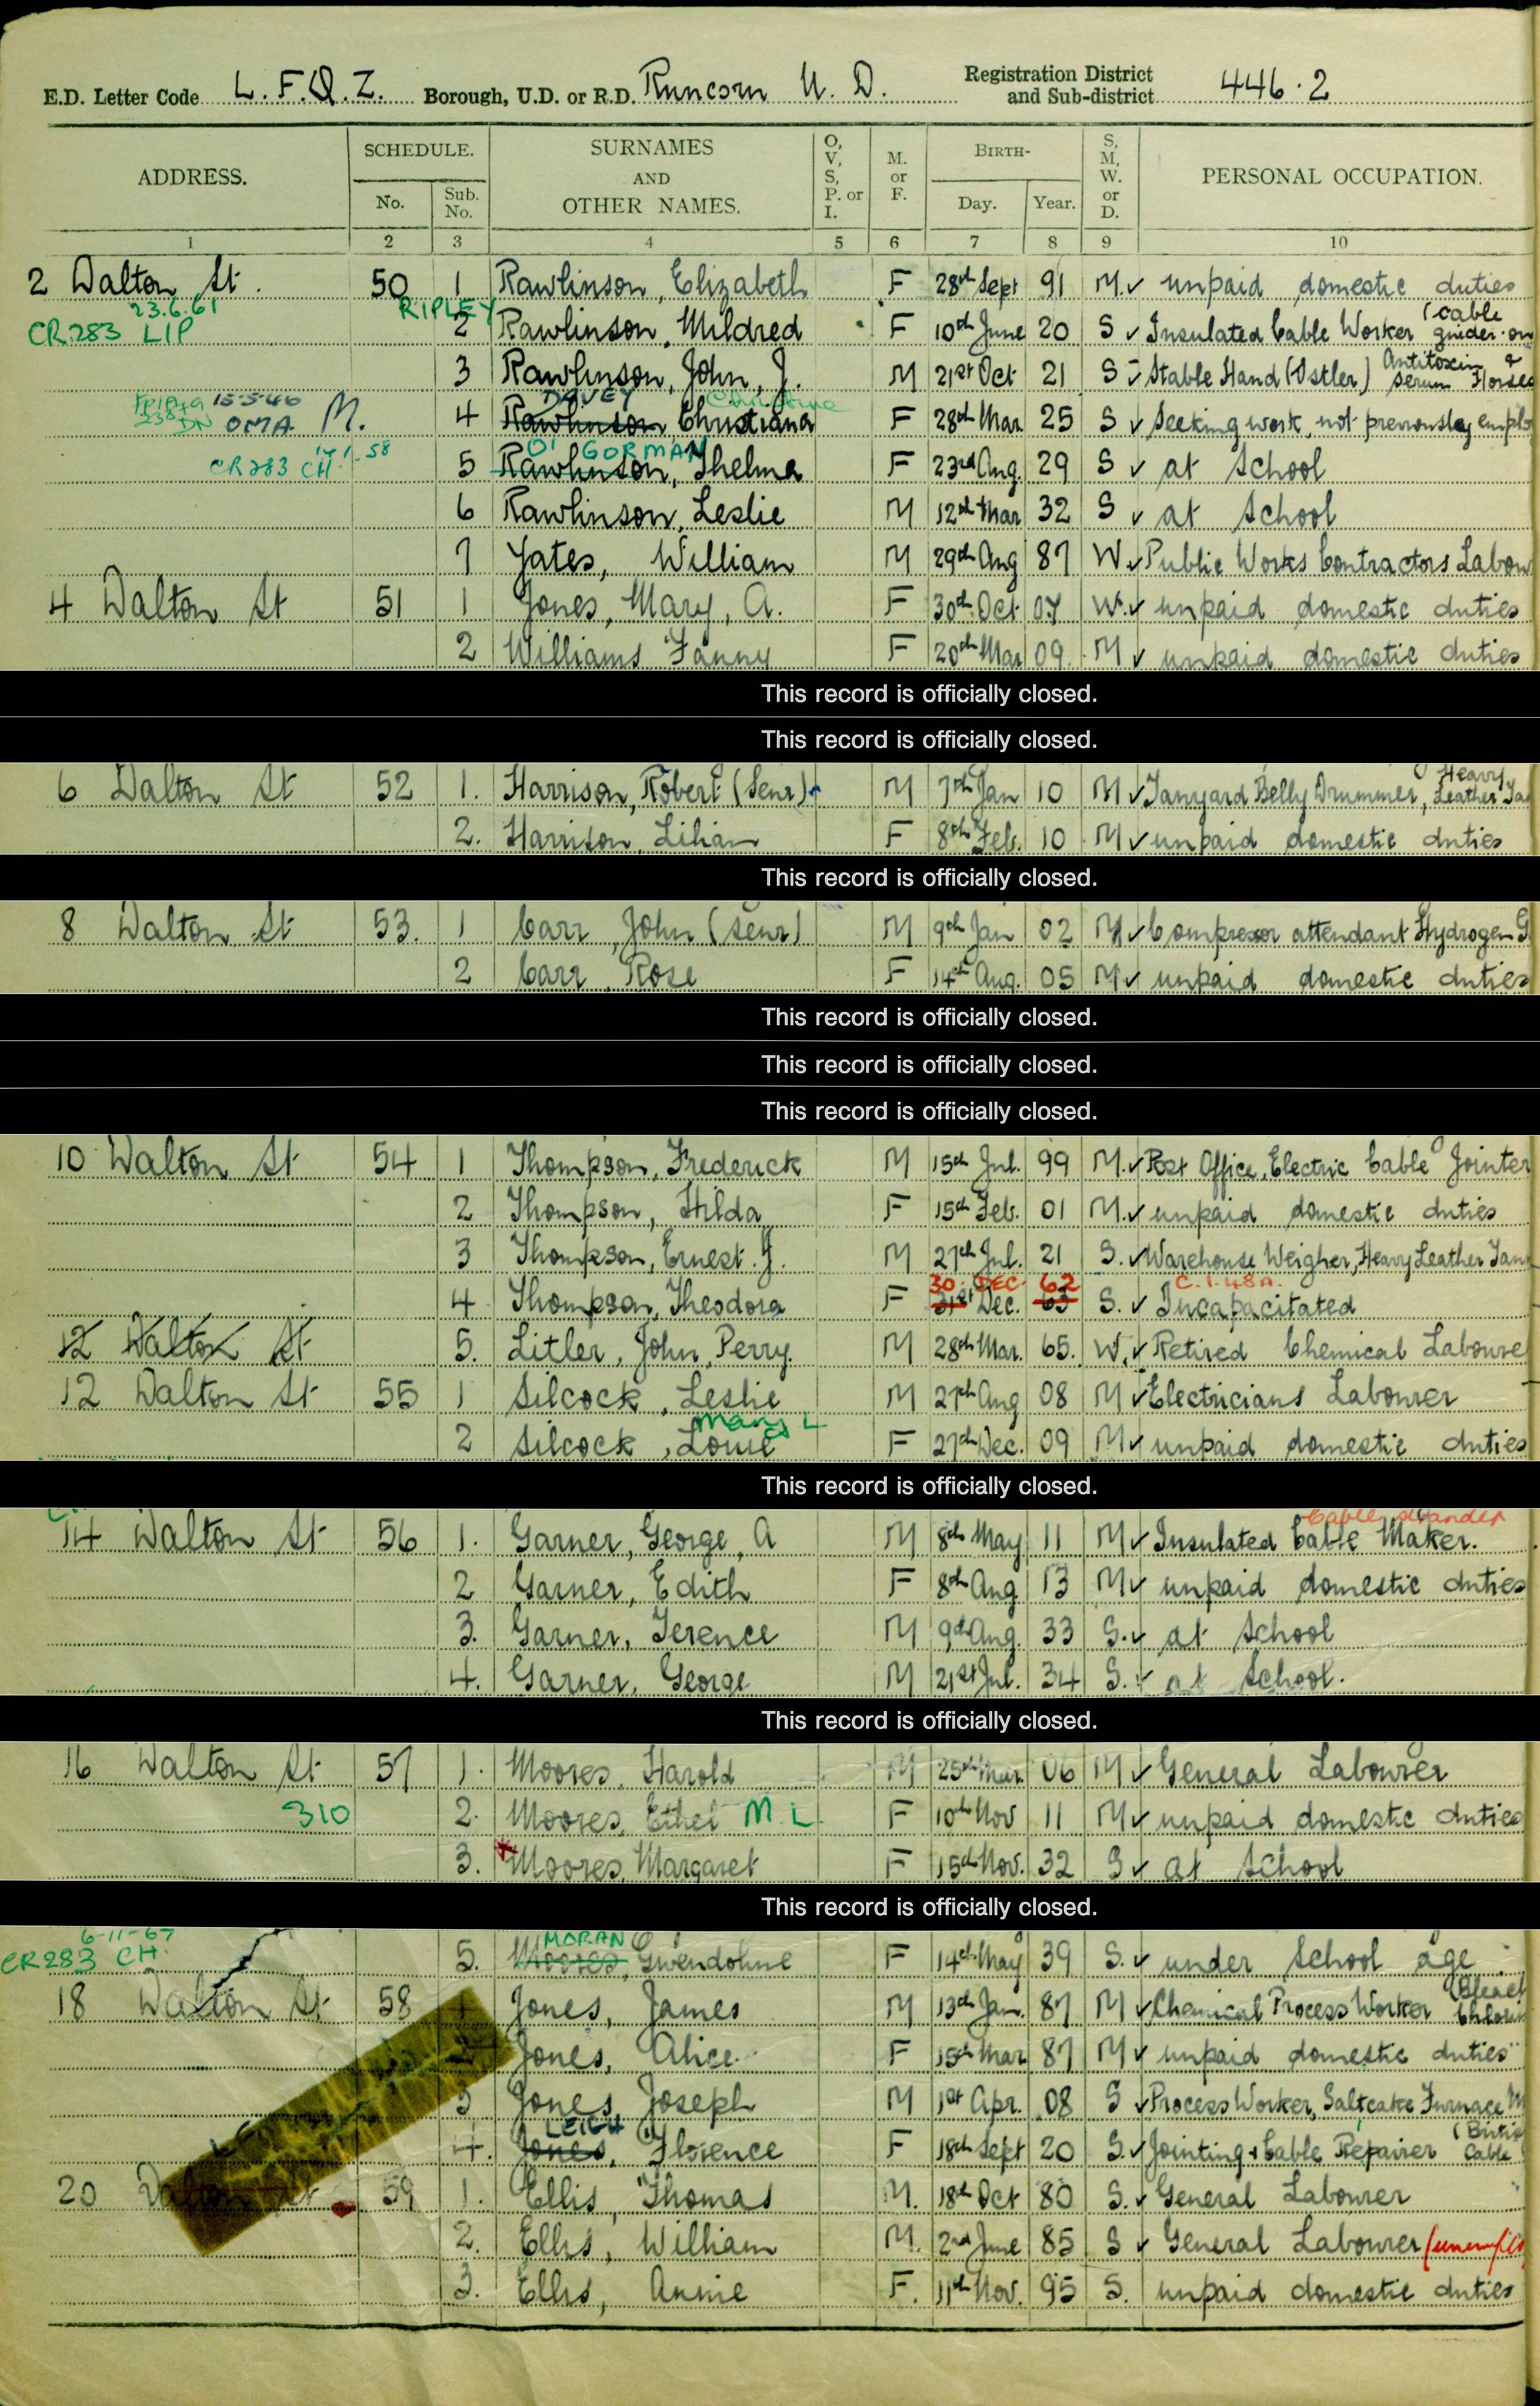 E.D. Letter Code L.F.Q.Z. Borough, U.D. or R.D. Runcorn U. D. Registration District and Sub-district 446.2
ADDRESS. SCHEDULE. No. Sub. No. SURNAMES AND OTHER NAMES. O, V, S, P. or I. M. or F. BIRTH- Day. Year. S, M, W. or D. PERSONAL OCCUPATION.
1 2 3 4 5 6 7 8 9 10
2 Walton St. 50 1 Rawlinson, Elizabeth F 28th Sept 91 M. ✓ unpaid domestic duties
23.6.61 RIPLEY (cable
CR283 LIP 2 Rawlinson, Mildred F 10th June 20 S ✓ Insulated Cable Worker guider on
3 Rawlinson, John, J. M 21st Oct 21 S Stable Hand (Ostler) Antitoxin & Serum Horses
15-5-46 DAVEY Christine
OMA M. 4 Rawlinson Christiana F 28th Mar 25 S ✓ Seeking work, not previously emplo
O'GORMAN
CR283 CH 58 5 Rawlinson, Thelma F 23rd Aug. 29 S ✓ at School
6 Rawlinson, Leslie M 12th Mar 32 S ✓ at School
7 Yates, William M 29th Aug 87 W ✓ Public Works Contractors Labou
4 Walton St 51 1 Jones, Mary, A. F 30th Oct 07 W. ✓ unpaid domestic duties
2 Williams Fanny F 20th Mar 09. M ✓ unpaid domestic duties
This record is officially closed.
This record is officially closed.
6 Walton St 52 1. Harrison, Robert (Senr) M 7th Jan 10 M ✓ Tanyard Belly Drummer, Heavy Leather Ta
2. Harrison, Lilian F 8th Feb. 10 M ✓ unpaid domestic duties
This record is officially closed.
8 Walton St 53. 1 Carr, John (Senr) M 9th Jan 02 M ✓ Compressor attendant Hydrogen G
2 Carr Rose F 14th Aug. 05 M ✓ unpaid domestic duties
This record is officially closed.
This record is officially closed.
This record is officially closed.
10 Walton St 54 1 Thompson, Frederick M 15th Jul. 99 M. ✓ Post Office, Electric Cable Jointer
2 Thompson, Hilda F 15th Feb. 01 M. ✓ unpaid domestic duties
3 Thompson, Ernest. J. M 27th Jul. 21 S. ✓ Warehouse Weigher, Heavy Leather Tan
30 DEC 62 C.1.48A.
4 Thompson, Theodora F 31st Dec. 63 S. ✓ Incapacitated
12 Walton St 5. Litler, John, Perry. M 28th Mar. 65. W. ✓ Retired Chemical Laboure
12 Walton St 55 1 Silcock, Leslie M 27th Aug 08 M ✓ Electricians Labourer
Mary L
2 Silcock, Louie F 27th Dec. 09 M ✓ unpaid domestic duties
This record is officially closed.
14 Walton St 56 1. Garner, George, A M 8th May 11 M ✓ Insulated Cable Maker.
2 Garner, Edith F 8th Aug 13 M ✓ unpaid domestic duties
3. Garner, Terence M 9th Aug. 33 S. ✓ at School
4. Garner, George M 21st Jul. 34 S. ✓ at School.
This record is officially closed.
16 Walton St 57 1. Moores, Harold M 25th Mar. 06 M ✓ General Labourer
310 2. Moores, Ethel M L F 10th Nov 11 M ✓ unpaid domestic duties
3. Moores, Margaret F 15th Nov. 32 S ✓ at School
This record is officially closed.
6-11-67 MORAN
CR283 CH 5. Moores, Gwendoline F 14th May 39 S. ✓ under School age
18 Walton St 58 1 Jones, James M 13th Jan. 87 M ✓ Chemical Process Worker
2 Jones, Alice F 15th Mar 87 M ✓ unpaid domestic duties
3 Jones, Joseph M 1st Apr. 08 S ✓ Process Worker, Saltcake Furnace M
LEIGH
4. Jones, Florence F 18th Sept 20 S. ✓ Jointing & Cable Repairer (Britis Cable
20 Walton St 59 1. Ellis, Thomas M. 18th Oct 80 S. ✓ General Labourer
2. Ellis, William M. 2nd June 85 S ✓ General Labourer (unemplo
3. Ellis, Annie F. 11th Nov. 95 S. unpaid domestic duties